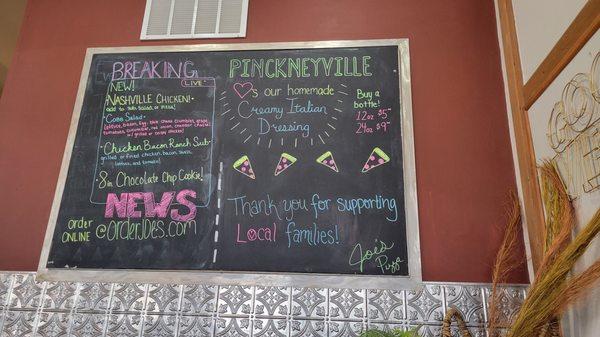 BREAKING
LIVE
NEW!
NASHVILLE CHICKEN!
add to
or Pizza!
COBB SALAD
lettuce, bacon, egg,
tomatoes, cucumber,
w/ grilled or crispy chicken
Chicken Bacon Ranch Sub
grilled or fried chicken, bacon,
lettuce, and tomato
8in Chocolate Chip Cookie!
NEWS
ORDER
ONLINE @ORDERJOES.COM
PINCKNEYVILLE
♡'s our homemade
Creamy Italian
Dressing
Buy a
bottle!
12oz $5
24oz $9
Thank you for supporting
Local families!
Joe's
Pizza